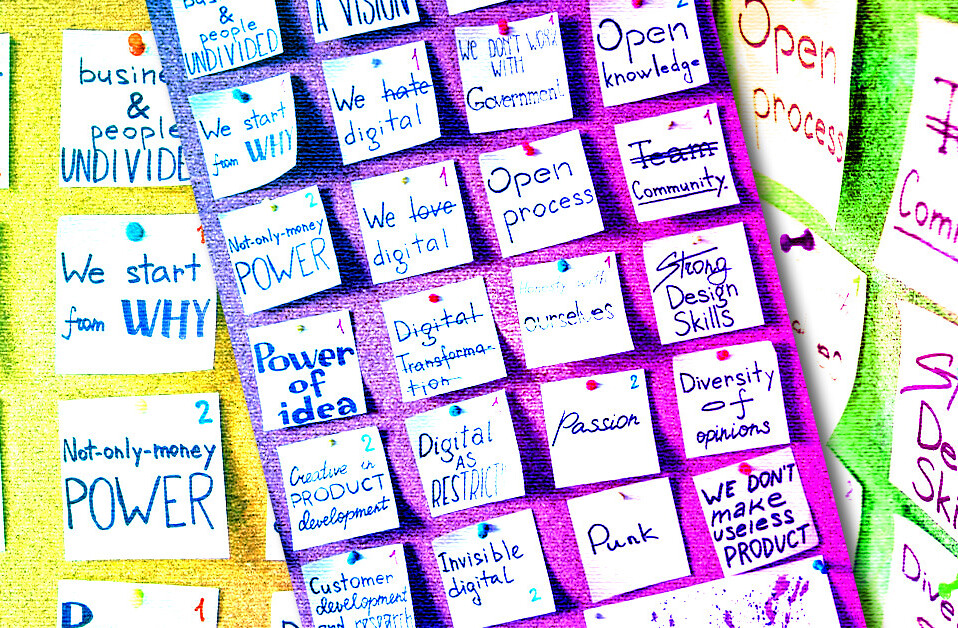 busine
&
people
UNDIVIDE
We start
from WHY
1
Not-only-money
POWER
2
1
&
people
UNDIVIDED
We start
from WHY
Not-only-money
POWER
2
Power
of
idea
1
Creative in
PRODUCT
development
2
Customer
development
and research
1
A VISION
We hate
digital
1
We love
digital
1
Digital
Transforma-
tion
Digital
AS
RESTRICT
1
Invisible
digital
2
WE DON'T WORK
WITH
Government
1
Open
process
ourselves
1
Passion
2
Punk
Open
knowledge
2
Team
Community.
1
Strong
Design
Skills
Diversity
of
opinions
WE DON'T
make
useless
PRODUCT
Open
process
Comm
De
Ski
Dive